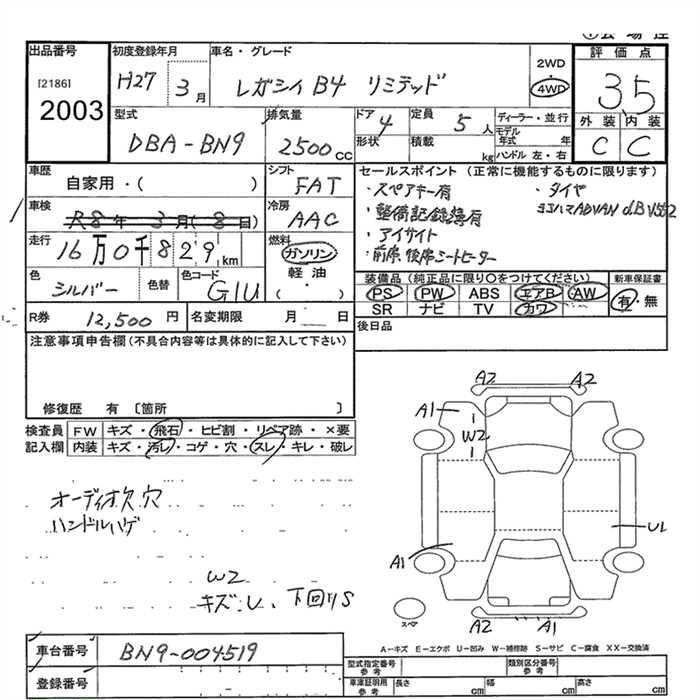 出品番号 初度登録年月 車名・グレード 評価点
[2186] H27 3月 レガシィ B4 リミテッド 2WD 4WD 3.5
2003
型式 排気量 ドア 定員 ディーラー・並行 外装 内装
DBA-BN9 2500cc 4 5人 モデル年式 年 C C
形状 積載 kg ハンドル 左・右
車歴 シフト セールスポイント(正常に機能するものに限ります)
自家用・( ) FAT ・スペアキー有 ・タイヤ
車検 冷房 ・整備記録簿有 ヨコハマADVAN dB V552
R8年 3月(8日) AAC ・アイサイト
走行 燃料 ・前席、後席シートヒーター
16万0千829km ガソリン
色 色替 色コード 軽油 装備品(純正品に限り○をつけてください) 新車保証書
シルバー G1U ( ・ ) PS PW ABS エアB AW 有・無
SR ナビ TV カワ
R券 12,500円 名変期限 月 日 後日品
注意事項申告欄(不具合内容等は具体的に記入して下さい)
修復歴 有 〔箇所 〕
検査員 FW キズ・飛石・ヒビ割・リペア跡・×要
記入欄 内装 キズ・汚レ・コゲ・穴・スレ・キレ・破レ
A2 A2
A1
W2
オーディオ欠.穴
ハンドルハゲ
U1
A1
W2
キズ:U、下回りS
スペア
A2 A1
A-キズ E-エクボ U-凹み W-補修跡 S-サビ C-腐食 XX-交換済
車台番号 BN9-004519
型式指定番号 参考 類別区分番号 参考
登録番号 車庫証明用 参考 長さ cm 幅 cm 高さ cm